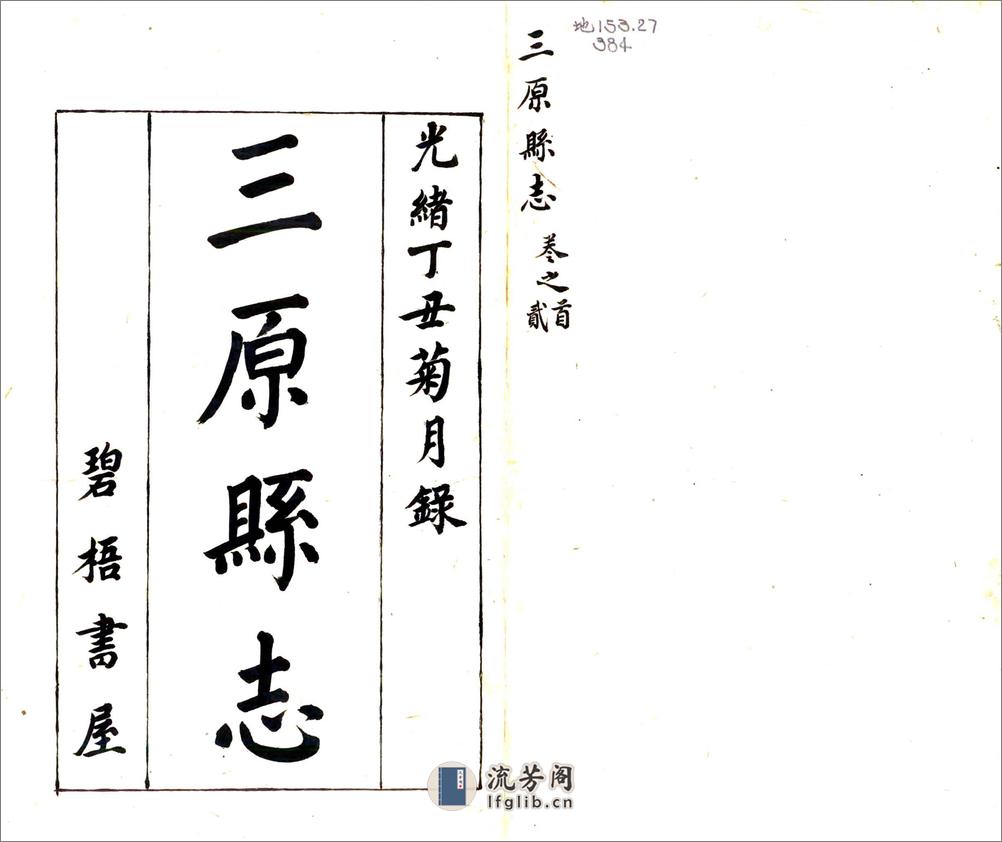 地153.27
384
三原縣志
卷之首
貳
光緒丁丑菊月錄
三原縣志
碧梧書屋
流芳阁
lfglib.cn